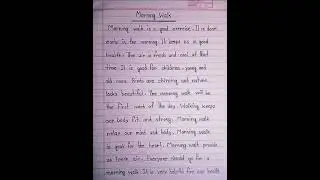 Morning Walk
Morning walk is a good exercise. It is done
early in the morning. It keeps us in good
health. The air is fresh and cool at that
time. It is good for children, young and
old ones. Birds are chirming and nature
looks beautiful. The morning walk will be
the first work of the day. Walking keeps
our body fit and strong. Morning walk
relax our mind and body. Morning walk
is good for the heart. Morning walk provide
us fresh air. Everyone should go for a
morning walk. It is very helpful for our health